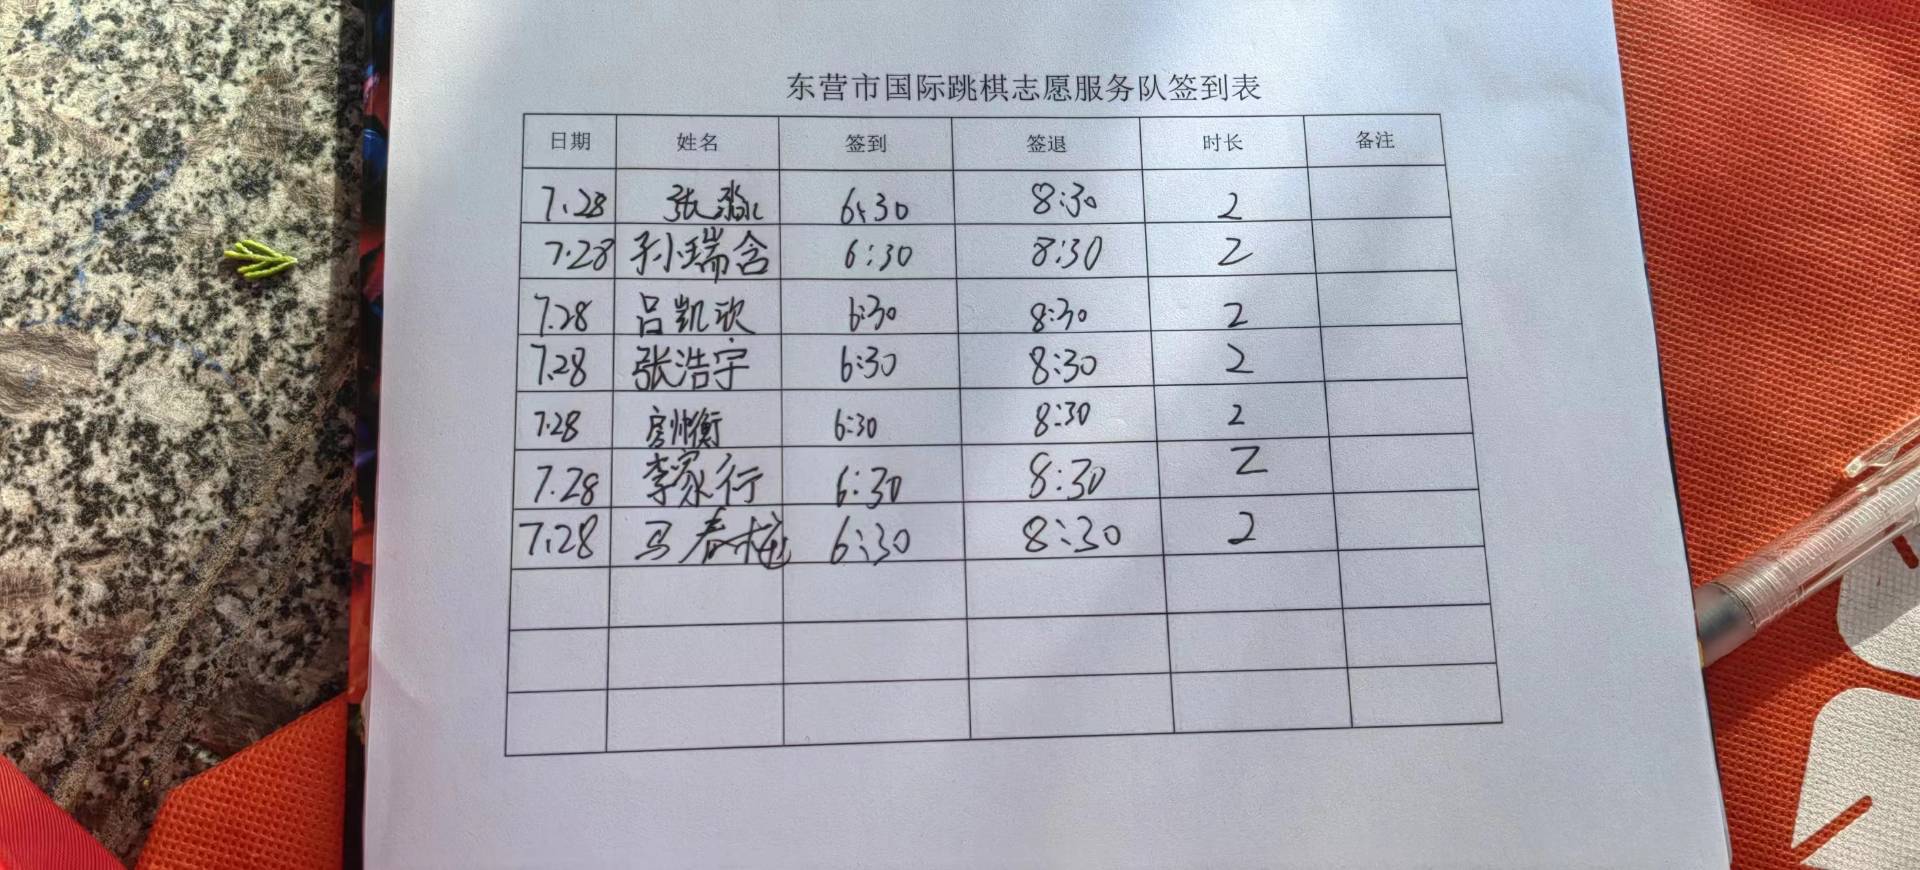 东营市国际跳棋志愿服务队签到表
日期 姓名 签到 签退 时长 备注
7.28 张淼 6:30 8:30 2
7.28 孙瑞含 6:30 8:30 2
7.28 吕凯欣 6:30 8:30 2
7.28 张浩宇 6:30 8:30 2
7.28 6:30 8:30 2
7.28 李家行 6:30 8:30 2
7.28 马春梅 6:30 8:30 2